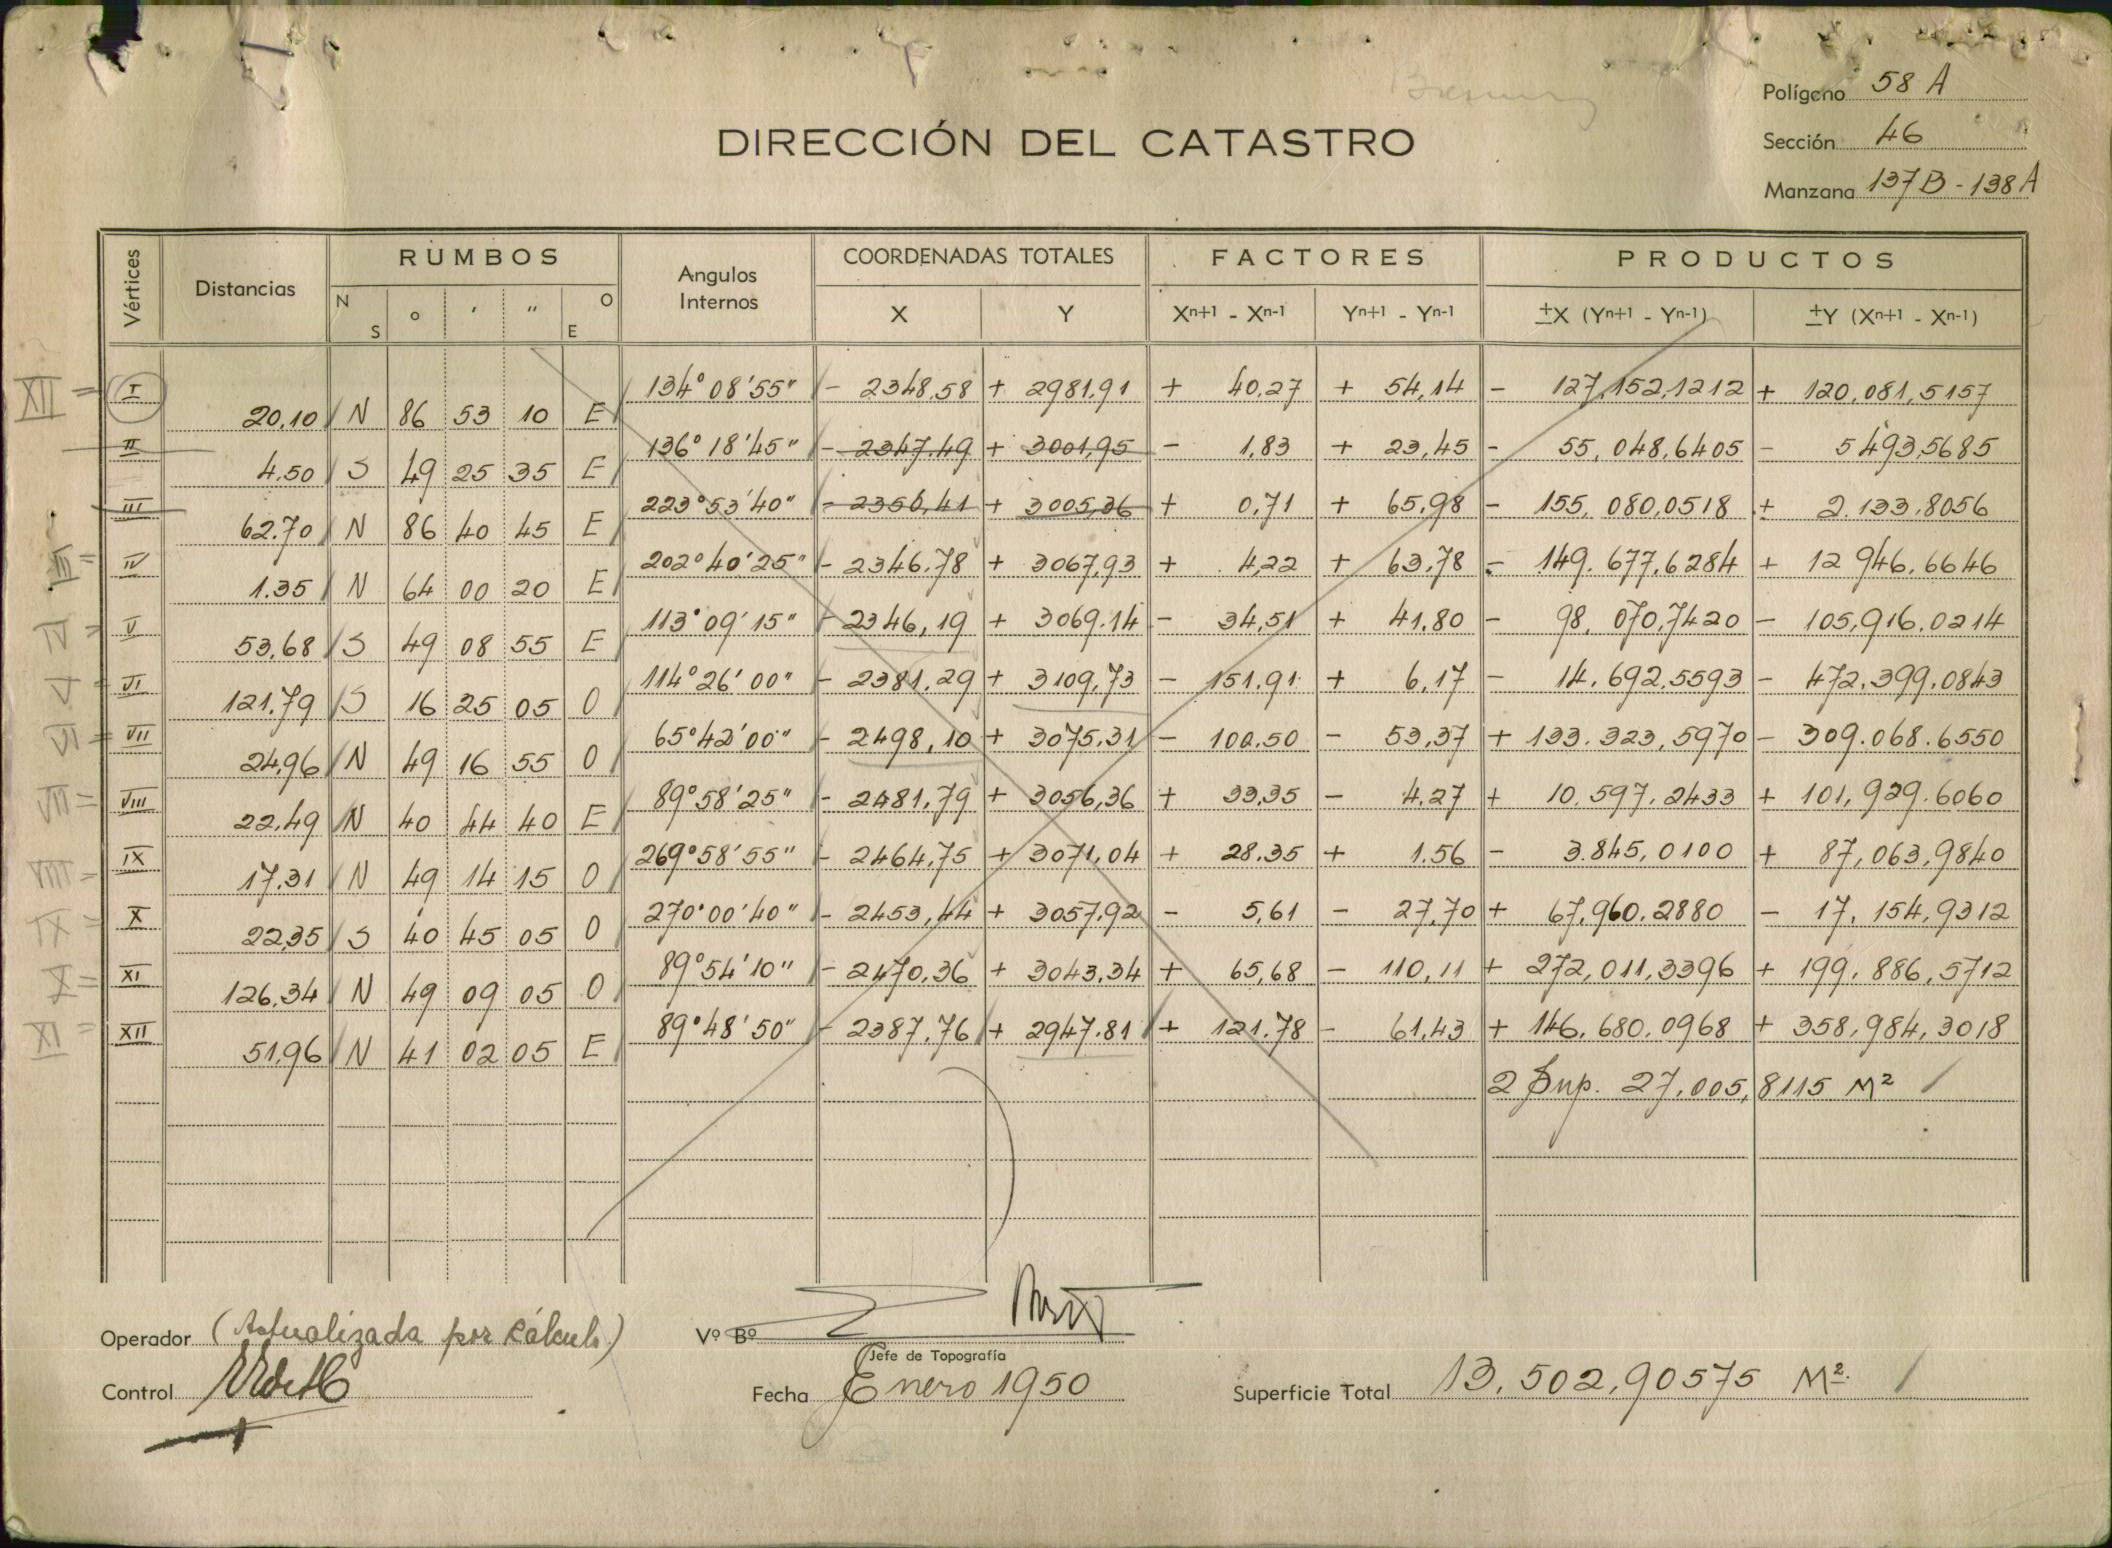 Polígono 58 A
Sección 46
Manzana 137B - 138A
DIRECCIÓN DEL CATASTRO
Vértices Distancias RUMBOS Angulos Internos COORDENADAS TOTALES FACTORES PRODUCTOS
N S ° ' " O E X Y Xn+1 - Xn-1 Yn+1 - Yn-1 ±X (Yn+1 - Yn-1) ±Y (Xn+1 - Xn-1)
XII = I 134° 08' 55" - 2348,58 + 2981,91 + 40,27 + 54,14 - 127,152,1212 + 120,081,5157
20,10 N 86 53 10 E
II 136° 18' 45" - 2347.49 + 3001,95 - 1,83 + 23,45 - 55,048,6405 - 5493,5685
4.50 S 49 25 35 E
III 223° 53' 40" - 2350,41 + 3005,36 + 0,71 + 65,98 - 155,080,0518 + 2.133.8056
62.70 N 86 40 45 E
III = IV 202° 40' 25" - 2346.78 + 3067,93 + 4,22 + 63,78 - 149.677,6284 + 12 946.6646
1.35 N 64 00 20 E
IV = V 113° 09' 15" - 2346,19 + 3069.14 - 34,51 + 41.80 - 98,070,7420 - 105,916.0214
53,68 S 49 08 55 E
V = VI 114° 26' 00" - 2381.29 + 3109,73 - 151.91 + 6,17 - 14.692,5593 - 472,399.0843
121.79 S 16 25 05 O
VI = VII 65° 42' 00" - 2498,10 + 3075.31 - 100.50 - 53,37 + 133.323,5970 - 309.068.6550
24,96 N 49 16 55 O
VII = VIII 89° 58' 25" - 2481,79 + 3056,36 + 33,35 - 4.27 + 10.597.2433 + 101,929.6060
22,49 N 40 44 40 E
VIII = IX 269° 58' 55" - 2464,75 + 3071,04 + 28.35 + 1.56 - 3.845,0100 + 87,063,9840
17,31 N 49 14 15 O
IX = X 270° 00' 40" - 2453,44 + 3057,92 - 5,61 - 27,70 + 67,960.2880 - 17.154,9312
22,35 S 40 45 05 O
X = XI 89° 54' 10" - 2470,36 + 3043,34 + 65,68 - 110,11 + 272,011,3396 + 199.886,5712
126,34 N 49 09 05 O
XI = XII 89° 48' 50" - 2387,76 + 2947.81 + 121.78 - 61,43 + 146.680.0968 + 358,984,3018
51,96 N 41 02 05 E
2 Sup. 27.005,8115 M²
Operador (Actualizada por cálculo)
Vº Bº
Jefe de Topografía
Control
Fecha Enero 1950
Superficie Total 13.502,90575 M².